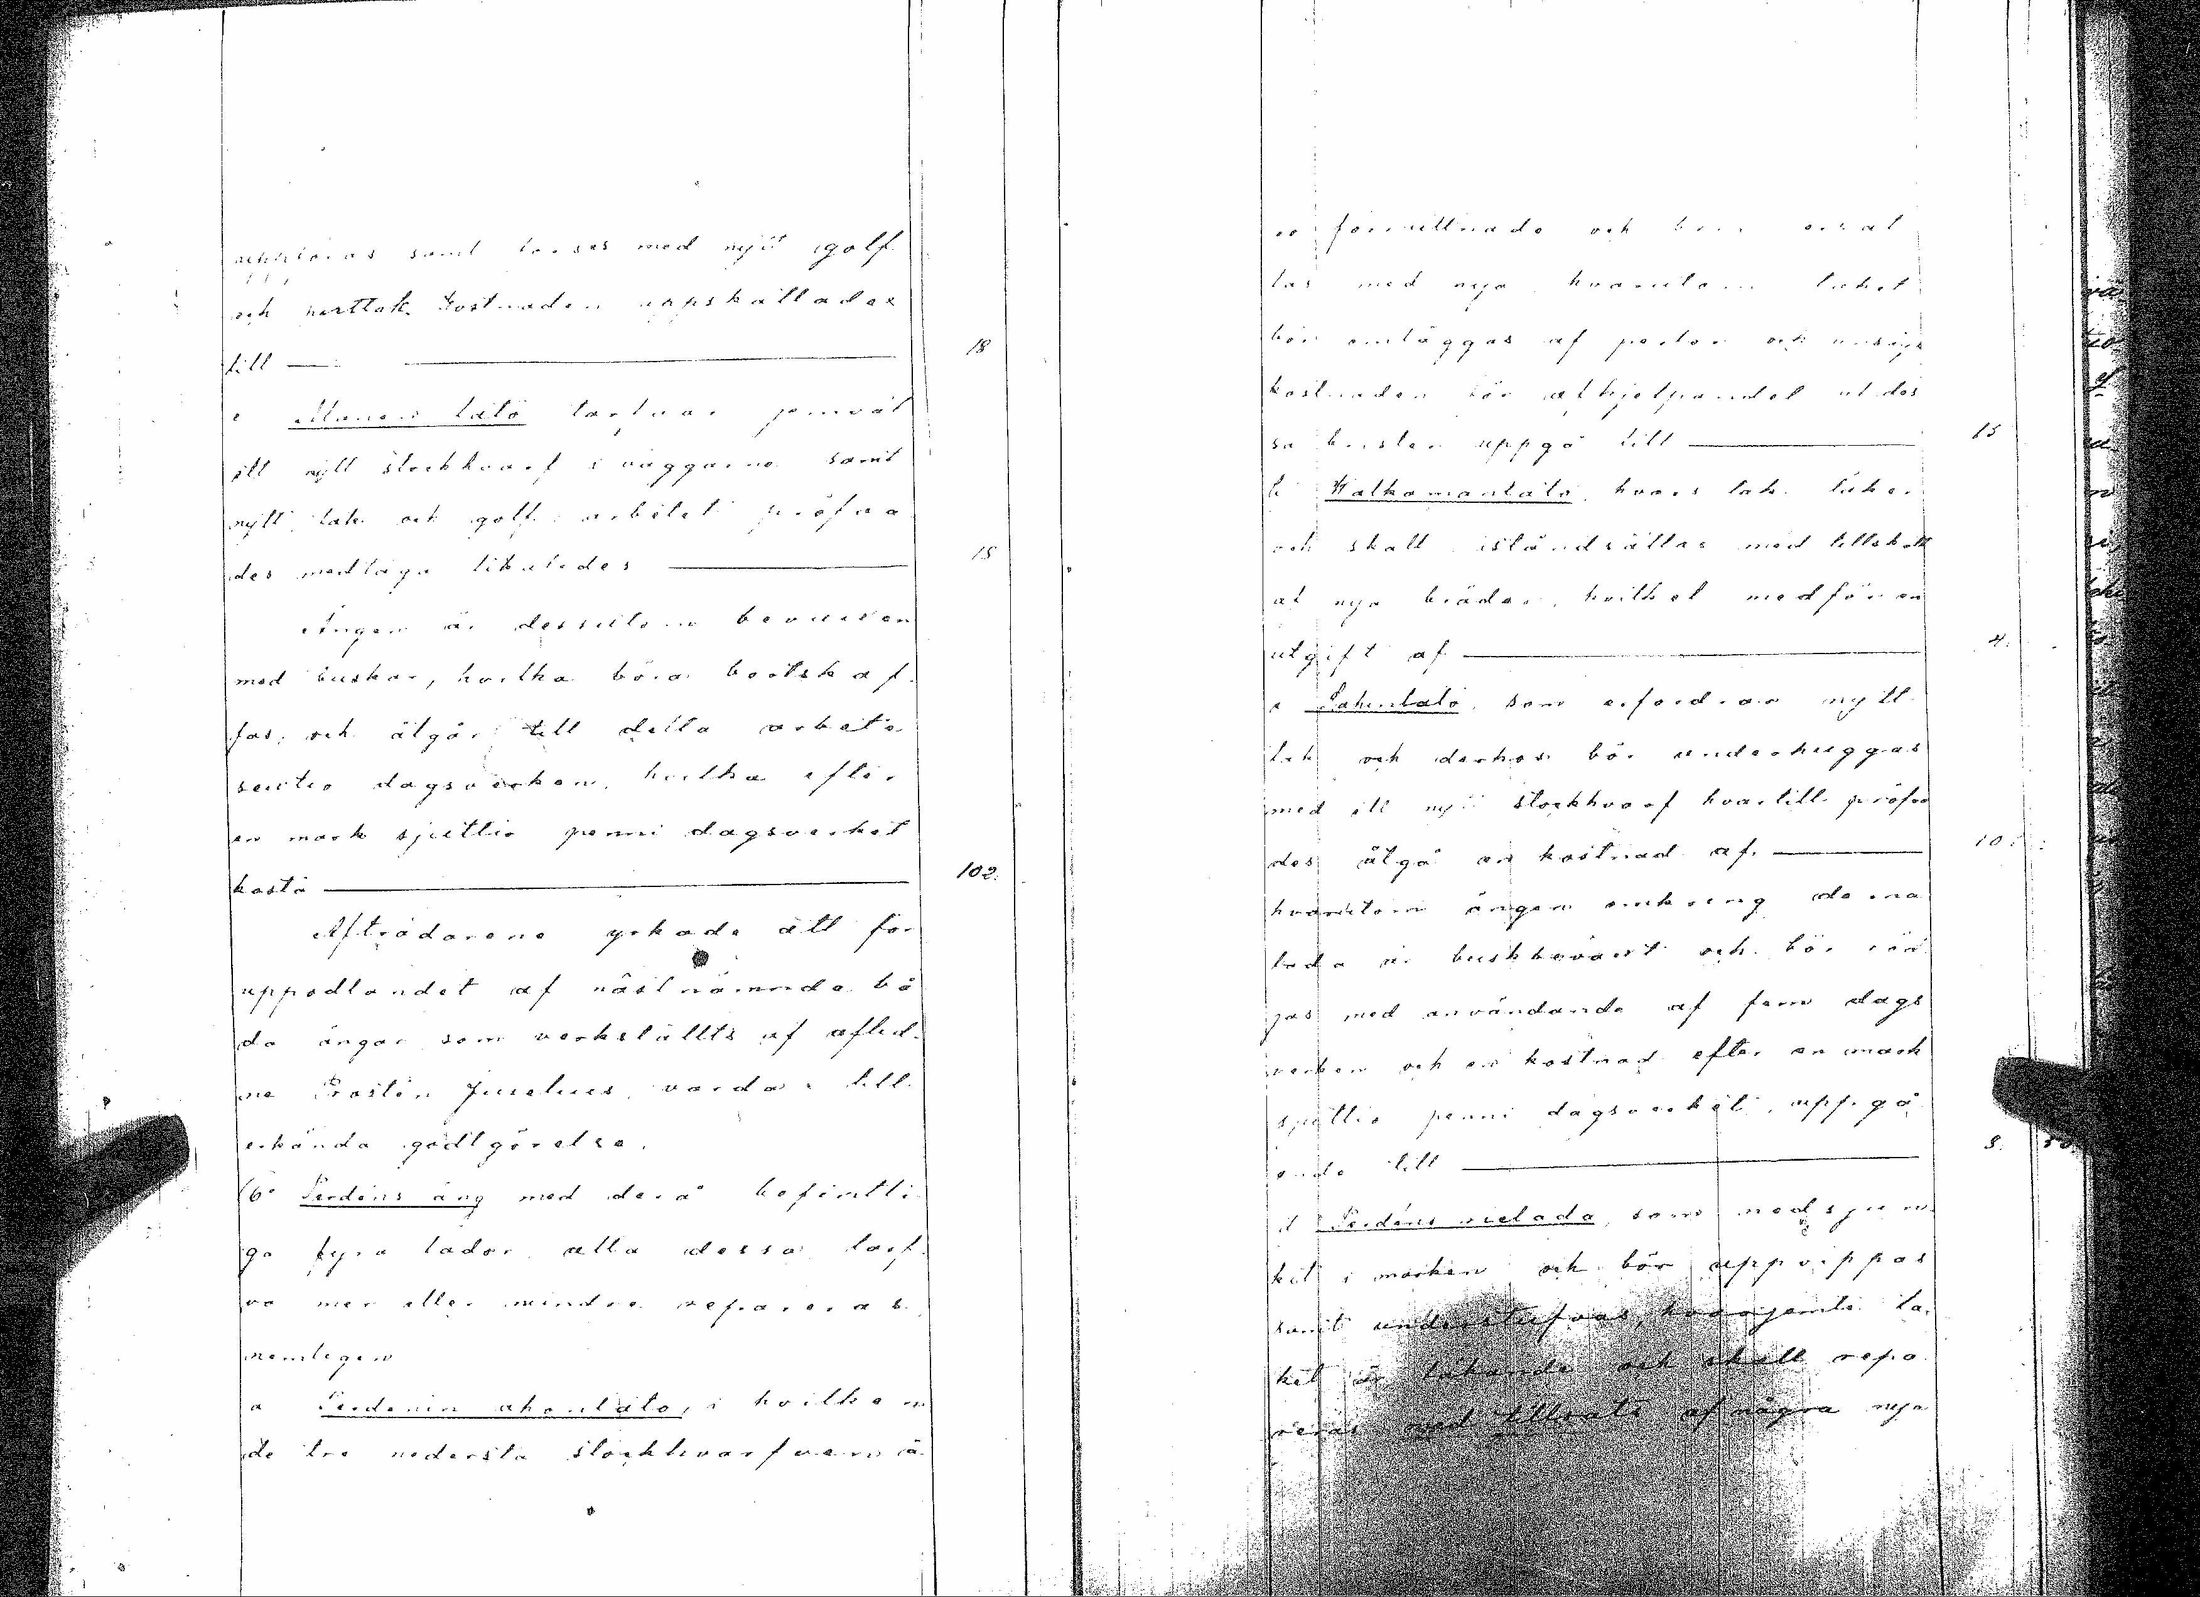 uppföras samt förses med nytt golf
och nerttak. Kostnaden uppskattades
till — 18
c Manen lato tarfvar jemväl
ett nytt stockhvarf i väggarne samt
nytt tak och golf; arbetet pröfva
des medtaga likaledes — 15
Ängen är dessutom bevuxen
med buskar, hvilka böra bortskaf
fas; och åtgår till detta arbete
sextio dagsverken, hvilka efter
en mark sjuttio penni dagsverket
kosta — 102.
Afträdarene yrkade att för
uppodlandet af nästnämnda bå
da ängar som verkställts af aflid
ne Prosten Juselius, varda till
erkända godtgörelse.
6o Perdens äng med derå befintli
ga fyra lador, alla dessa tarf
va mer eller mindre repareras
nemligen
a Perdenin ahonlato, i hvilken
de tre nedersta stockhvarfven ä
ro förruttnade och böra ersät
tas med nya, hvarutom taket
bör omläggas af pertor och
kostnaden för afhjelpandet af des
sa brister uppgå till — 15
b Kalkamanlato, hvars tak läker
och skall iståndsättas med tillskott
af nya bräder, hvilket medför en
utgift af — 4.
c Lahenlato, som erfordrar nytt
tak och derhos bör underhuggas
med ett nytt stockhvarf hvartill pröfva
des åtgå en kostnad af — 10.
hvarutom ängen omkring denna
lada är buskbeväxt och bör röd
jas med användande af fem dags
verken och en kostnad efter en mark
sjuttio penni dagsverket, uppgå
ende till — 8. 50
d Perdens rielada, som nedsjun
kit i marken och bör uppvippas
samt understufvas, hvarjemte ta
ket är läkande och skall repa
reras med tillsats af några nya